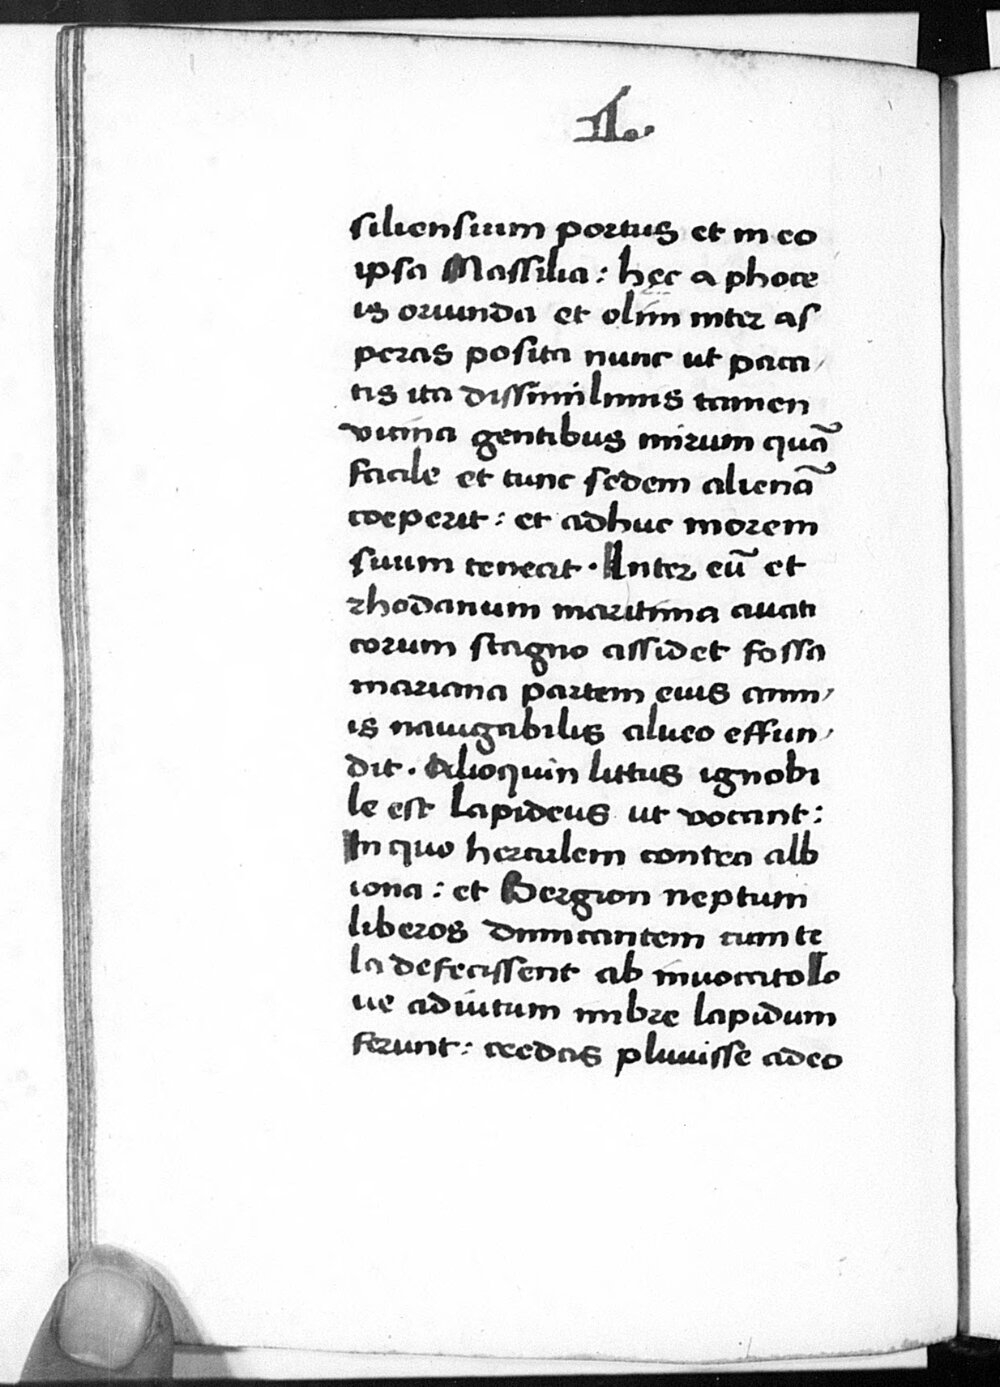 .II.
siliensium portus et in eo
ipsa Massilia: hęc a phoce
is oriunda et olim inter as
peras posita nunc ut paca
tis ita dissimilimis tamen
vicina gentibus mirum quā
facile et tunc sedem alienā
coeperit: et adhuc morem
suum teneat. Inter eū et
rhodanum maritima auati
corum stagno assidet fossa
mariana partem eius amn
is nauigabilis alueo effun
dit. Alioquin littus ignobi
le est lapideus ut vocant:
In quo herculem contra alb
iona: et Bergion neptuni
liberos dimicantem cum te
la defecissent ab inuocato Io
ue adiutum imbre lapidum
ferunt: credas pluuisse adeo